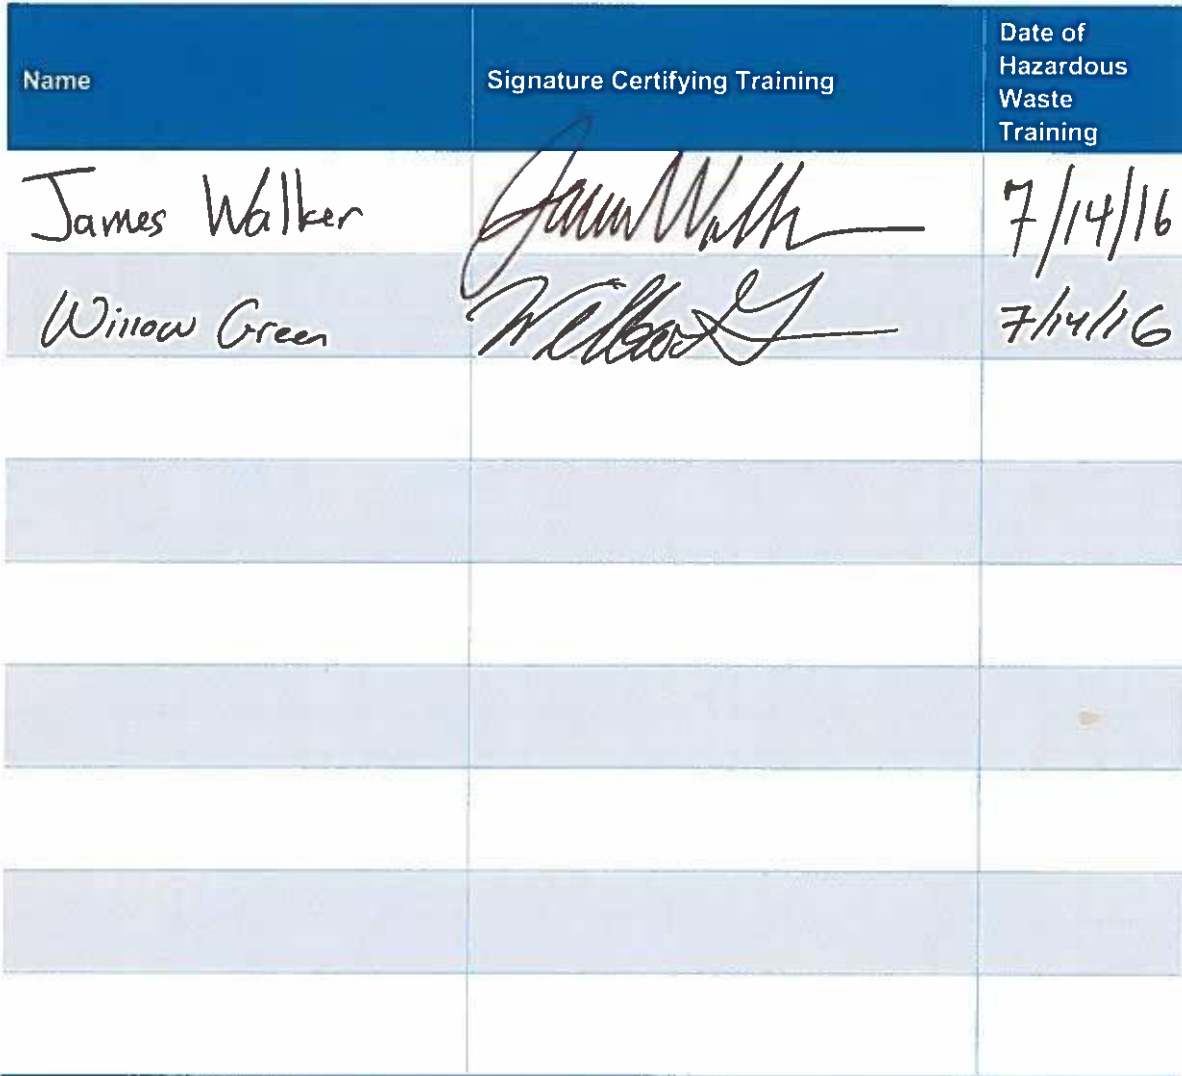 Name Signature Certifying Training Date of
Hazardous
Waste
Training
James Walker James Walker 7/14/16
Willow Green Willow G 7/14/16